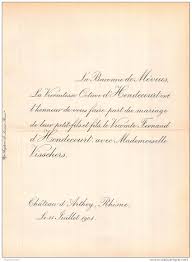 La Baronne de Movius,
La Vicomtesse Octave d'Hendecourt ont
l'honneur de vous faire part du mariage
de leur petit-fils et fils, le Vicomte Fernand
d'Hendecourt, avec Mademoiselle
Visschers.
Château d'Anthey, Rhisnes.
Le 11 Juillet 1901.